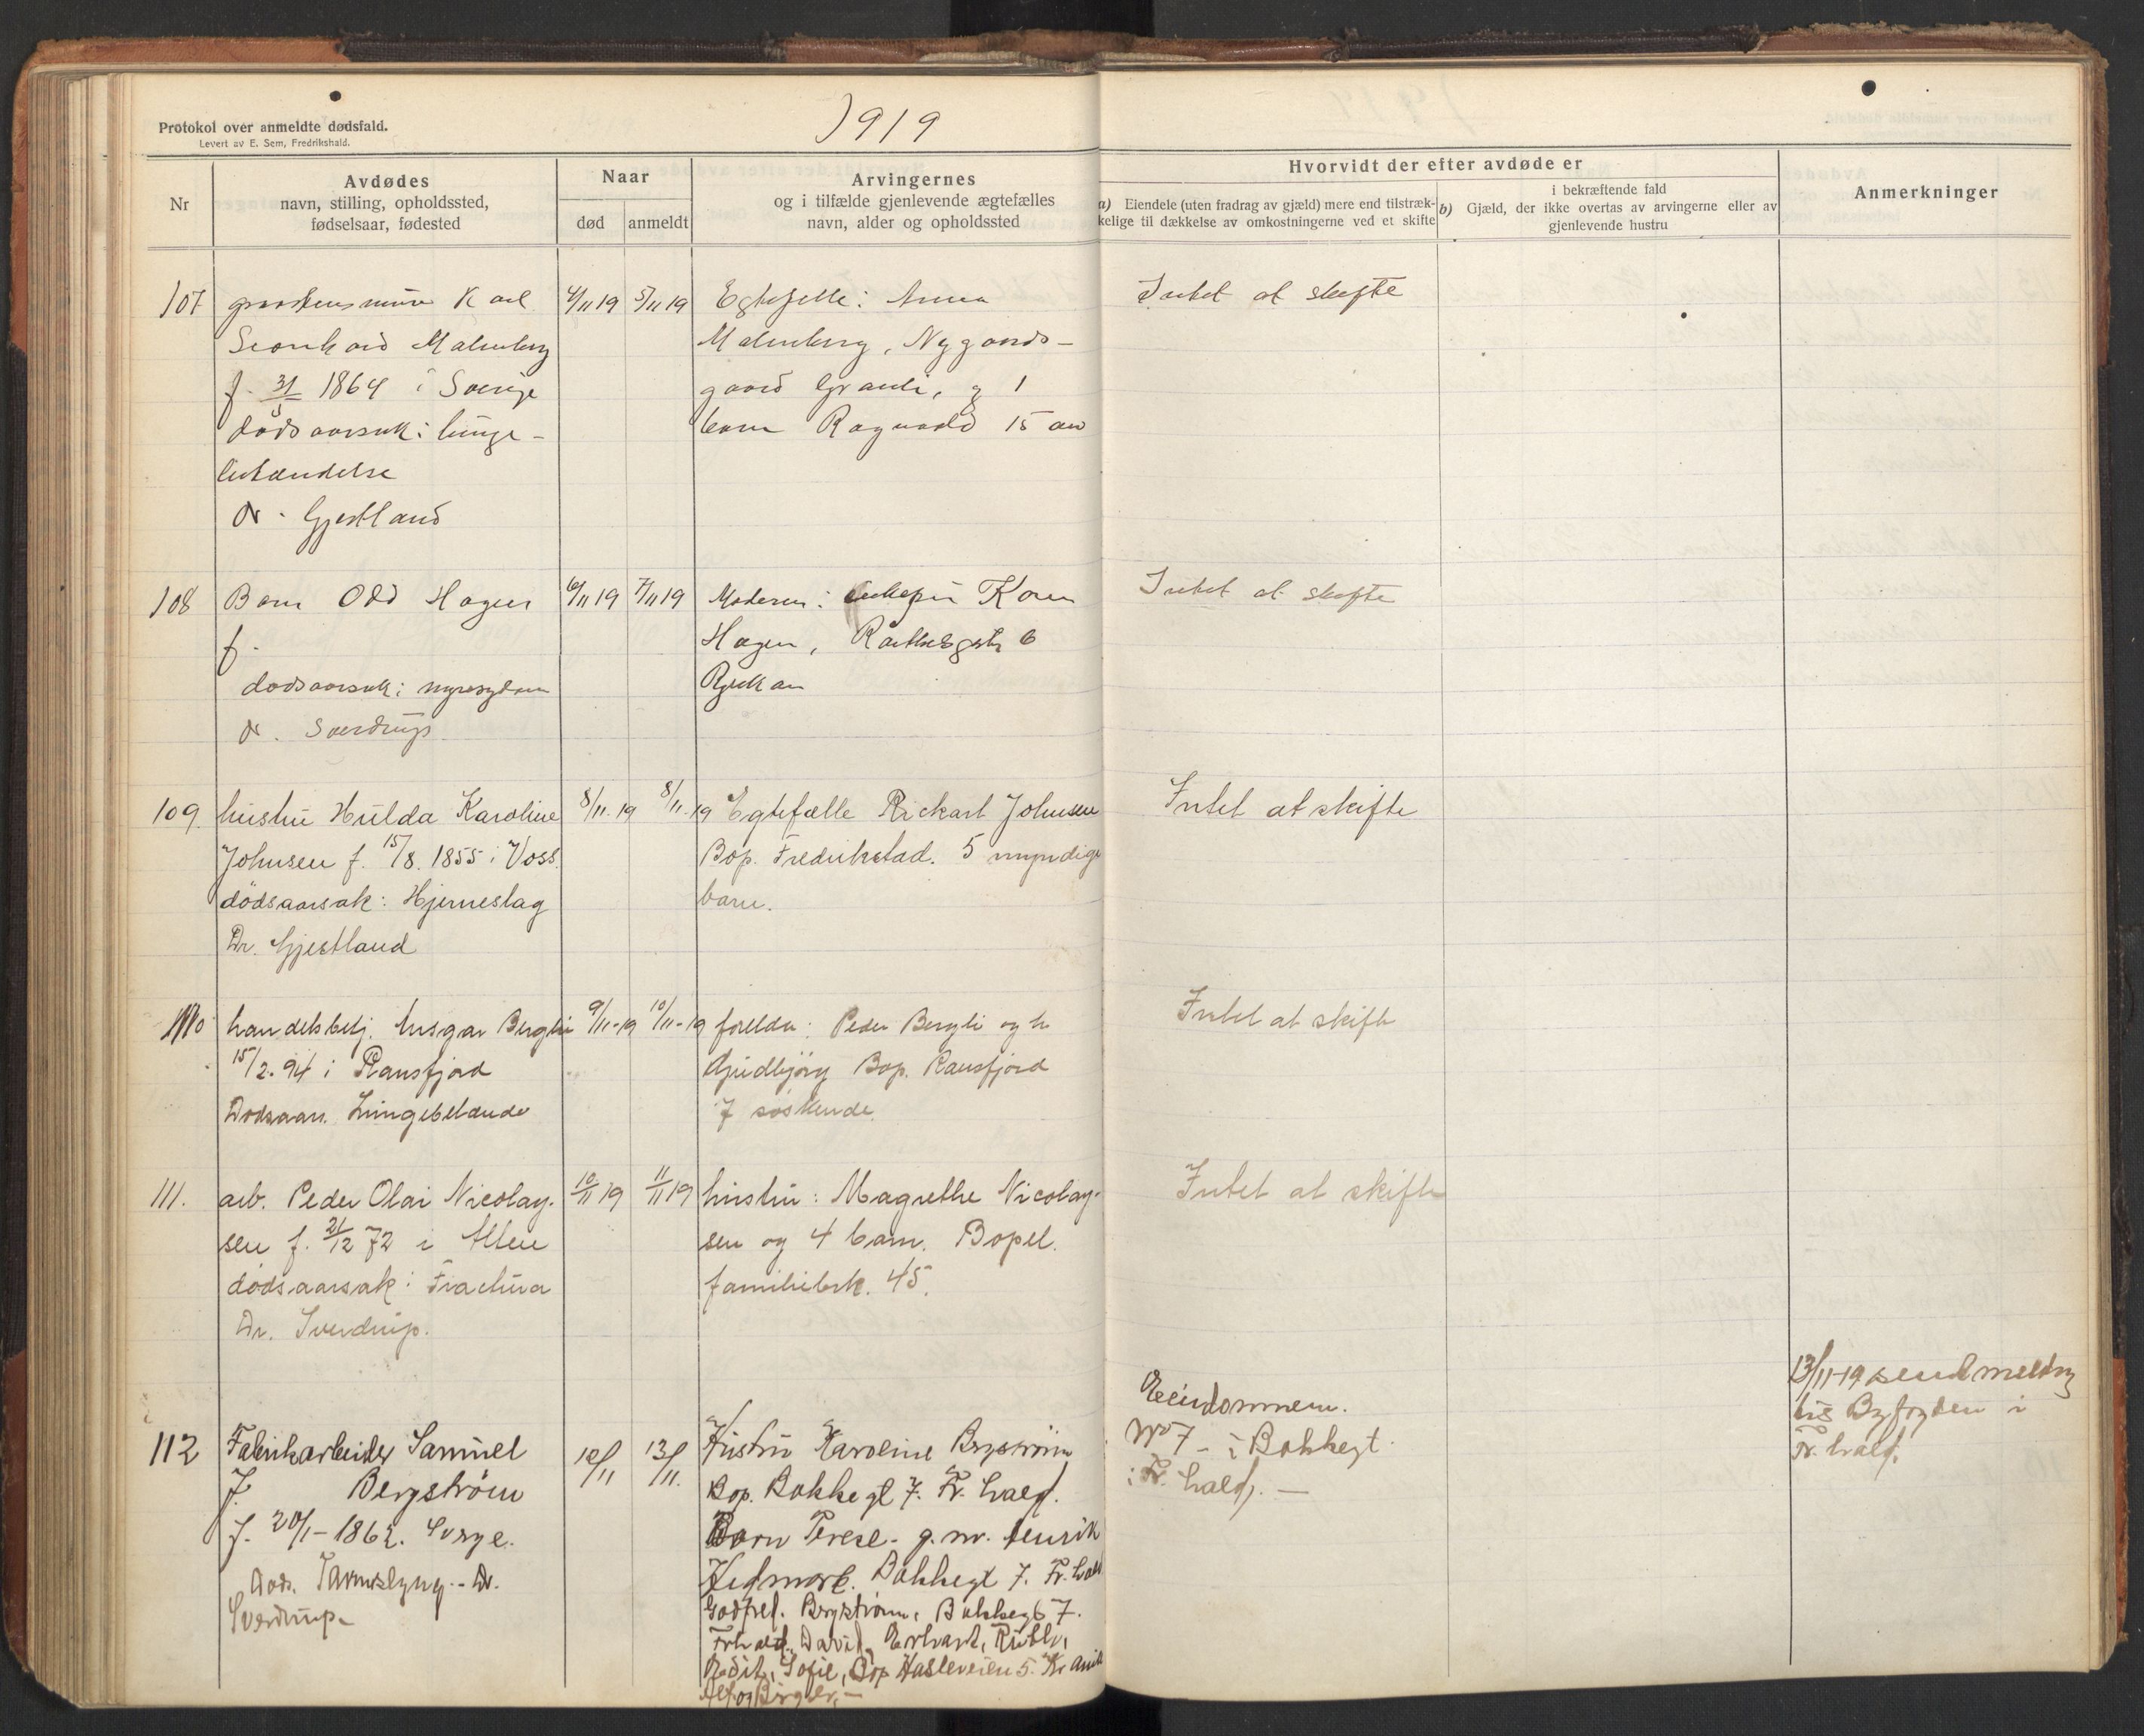 Protokol over anmeldte dødsfald.
Levert av E. Sem, Fredrikshald.
1919
Nr
Avdødes
navn, stilling, opholdssted,
fødselsaar, fødested
Naar
død
anmeldt
Arvingernes
og i tilfælde gjenlevende ægtefælles
navn, alder og opholdssted
Hvorvidt der efter avdøde er
a) Eiendele (uten fradrag av gjæld) mere end tilstræk-
kelige til dækkelse av omkostningerne ved et skifte
b) i bekræftende fald
Gjæld, der ikke overtas av arvingerne eller av
gjenlevende hustru
Anmerkninger
107
Karl
Leonhard Malmberg
f. 31/5 1864 i Sverige
dødsaarsak: lunge-
betændelse
Dr. Gjestland
4/11 19
5/11 19
Egtefelle: Anna
Malmberg, Nygaards-
gaard og 1
barn Ragnvald 15 aar
Intet at skifte
108
Barn Odd Hagen
f.
dødsaarsak: nyresygdom
Dr. Sverdrup
6/11 19
7/11 19
Moderen: Karen
Hagen, 6
Rjukan
Intet at skifte
109.
hustru Hulda Karoline
Johnsen f. 15/8. 1855 i Voss.
dödsaarsak: Hjerneslag
Dr. Gjestland
8/11. 19
8/11. 19
Egtefælle Rickart Johnsen
Bop. Fredrikstad. 5 myndige
barn.
Intet at skifte
110
handelsbetj. Ansgar Bergli
15/2. 94 i Ransfjord
Dødsaars. Lungebetænde
9/11-19
10/11-19
foreldre: Peder Bergli og h
Gudbjørg Bop. Ransfjord
7 søskende.
Intet at skifte
111.
arb. Peder Olai Nicolay-
sen f. 21/12 72 i Alten
dødsaarsak: Fractura
Dr. Sverdrup.
10/11 19
11/11 19
hustru: Magrethe Nicolay-
sen og 4 barn. Bopel.
familiebrk. 45.
Intet at skifte
112
Fabrikarbeider Samuel
J. Bergström
f. 20/1-1862. Sverge.
Døds. Tarmslyng.- Dr.
Sverdrup-
12/11
13/11.
Hustru Karoline Bergström
Bop. Bakkegt 7. Fr. hald.
Barn Terese- g.m. Henrik
Hedmark. Bakkegt 7. Fr. hald
Godfred. Bergström, Bakkegt 7.
Frhald, David, Erhart, Ruth,
Edit, Sofie, Bop Hasleveien 5. Kr ania
Alf og Birger,-
Eiendommen.
No 7- i Bakkegt.
i Fr. hald. -
13/11-19 send melding
til Byfogden i
Fr. hald.